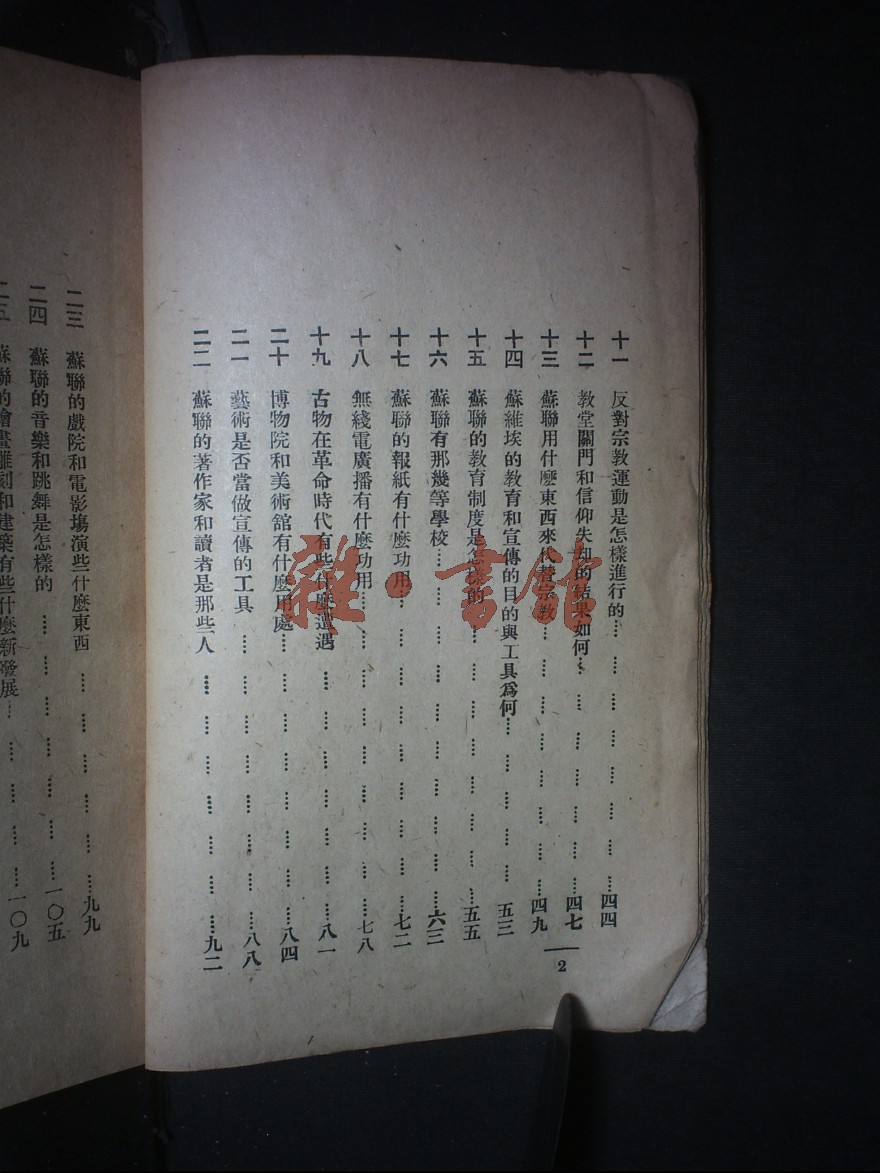 十一 反對宗教運動是怎樣進行的…… 四四
十二 教堂關門和信仰失却的結果如何…… 四七
十三 蘇聯用什麼東西來代替宗教…… 四九
十四 蘇維埃的教育和宣傳的目的與工具爲何…… 五三
十五 蘇聯的教育制度是怎樣的…… 五五
十六 蘇聯有那幾等學校…… 六三
十七 蘇聯的報紙有什麼功用…… 七二
十八 無綫電廣播有什麼功用…… 七八
十九 古物在革命時代有些什麼遭遇…… 八一
二十 博物院和美術舘有什麼用處…… 八四
二一 藝術是否當做宣傳的工具…… 八八
二二 蘇聯的著作家和讀者是那些人…… 九二
2
二三 蘇聯的戲院和電影場演些什麼東西…… 九九
二四 蘇聯的音樂和跳舞是怎樣的…… 一〇五
二五 蘇聯的繪畫雕刻和建築有些什麼新發展…… 一〇九
雜·書館